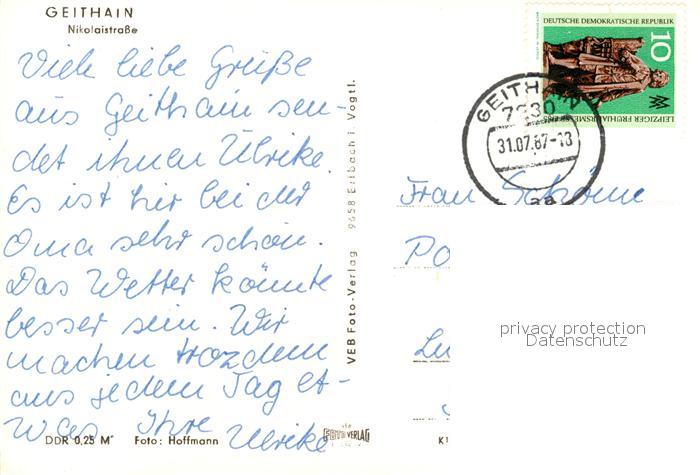 GEITHAIN
Nikolaistraße
Viele liebe Grüße
aus Geithain sen-
det ihnen Ulrike.
Es ist hier bei der
Oma sehr schön.
Das Wetter könnte
besser sein. Wir
machen trozdem
aus jedem Tag et-
was Ihre
Ulrike
DDR 0,25 M
Foto: Hoffmann
VEB Foto-Verlag 9658 Erlbach i. Vogtl.
FOTO VERLAG
K1
DEUTSCHE DEMOKRATISCHE REPUBLIK
10
LEIPZIGER FRÜHJAHRSMESSE
GEITHAIN
7230
31.07.87-18
aa
Frau Schöne
Po
Lu
privacy protection
Datenschutz